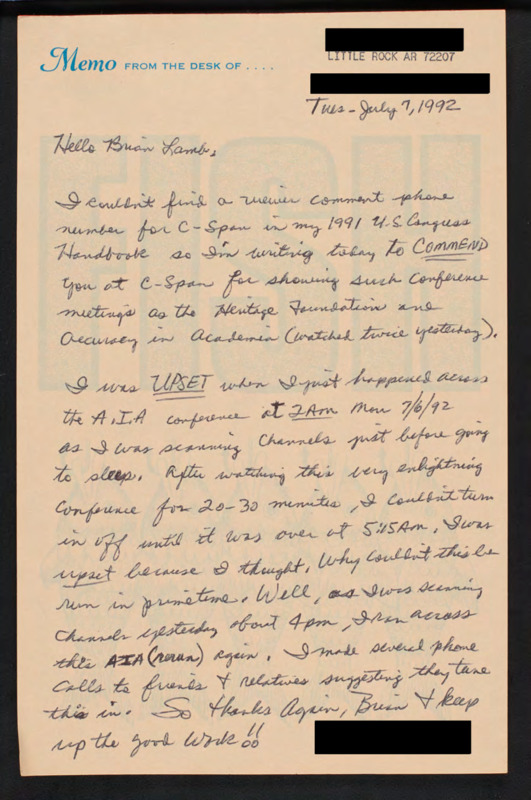 Memo FROM THE DESK OF ....
LITTLE ROCK AR 72207
Tues - July 7, 1992
Hello Brian Lamb,
I couldn't find a viewer comment phone
number for C-Span in my 1991 U.S. Congress
Handbook so I'm writing today to COMMEND
you at C-Span for showing such conference
meetings as the Heritage Foundation and
Accuracy in Academia (watched twice yesterday).
I was UPSET when I just happened across
the A.I.A conference at 2AM Mon 7/6/92
as I was scanning channels just before going
to sleep. After watching this very enlightning
conference for 20-30 minutes, I couldn't turn
in off until it was over at 5:15AM. I was
upset because I thought, Why couldn't this be
run in primetime. Well, as I was scanning
channels yesterday about 4pm, I ran across
this AIA (rerun) again. I made several phone
calls to friends & relatives suggesting they tune
this in. So thanks Again, Brian & keep
up the good work!!